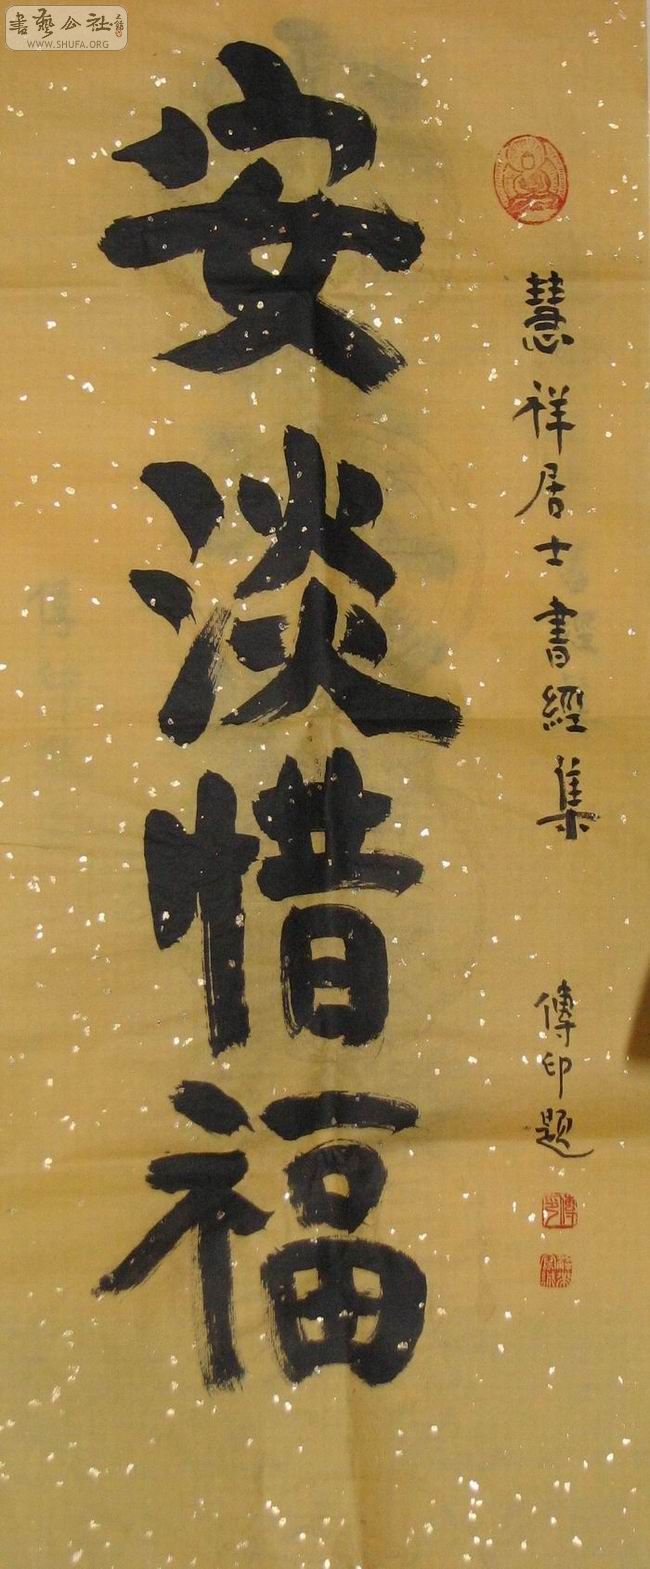 書藝公社
WWW.SHUFA.ORG
慧祥居士書經集
安淡惜福
傳印題
傳印